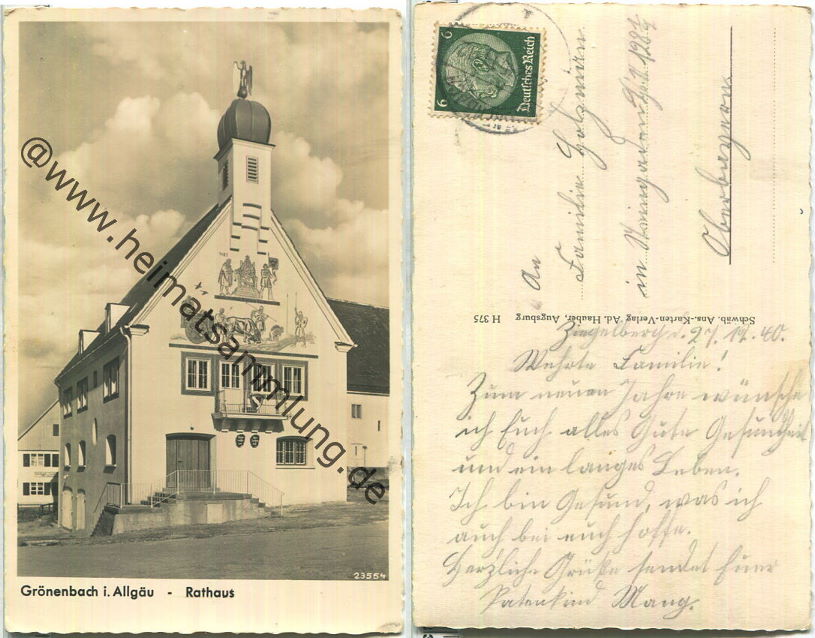 @www.heimatsammlung.de
23554
Grönenbach i. Allgäu - Rathaus
6 Deutsches Reich 6
An
Familie Holzmann
in Steingaden
Oberbayern
Schwäb. Ans.-Karten-Verlag Ad. Hauber, Augsburg H 375
Ziegelberg d. 27. 12. 40.
Wehrte Familie!
Zum neuen Jahre wünsche
ich Euch alles Gute Gesundheit
und ein langes Leben.
Ich bin Gesund, was ich
auch bei euch hoffe.
Herzliche Grüße sendet Euer
Patenkind Mang.